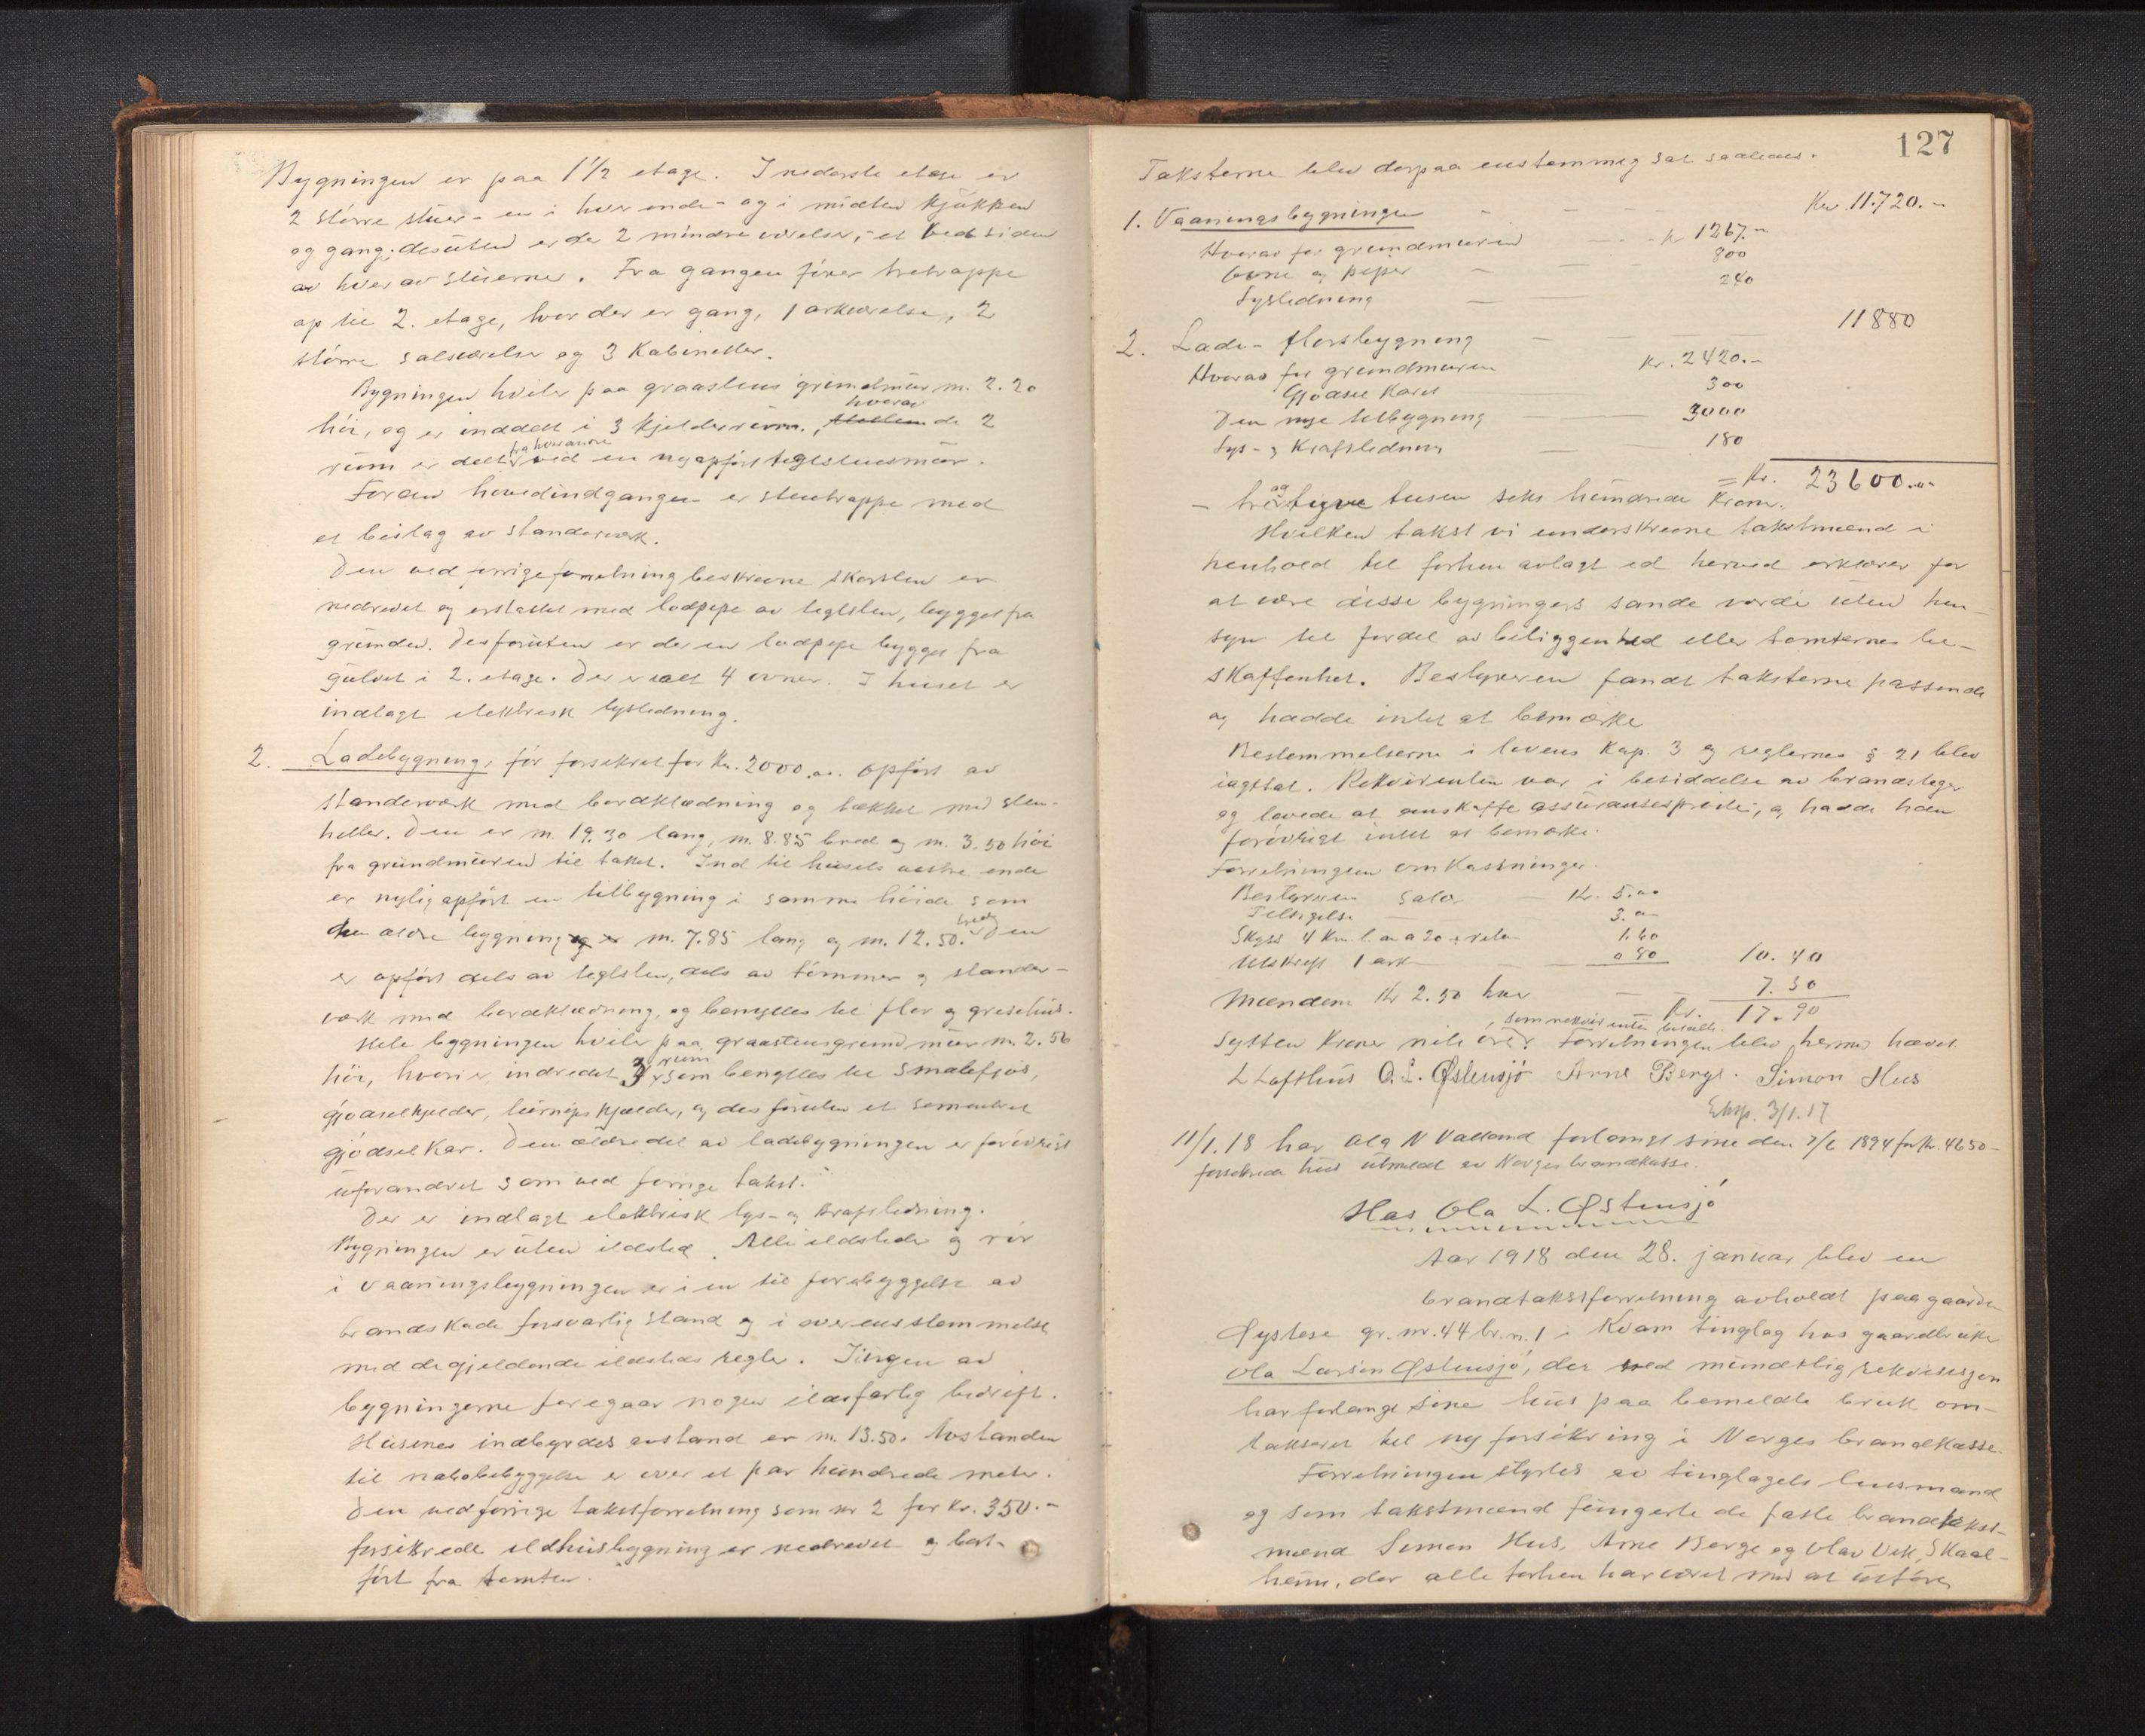 Bygningen er paa 1 1/2 etage. I nederste etage er
2 större stuer - en i hver ende - og i midten kjökken
og gang; desuten er de 2 mindre værelser, et ved siden
av hver av stuerne. Fra gangen förer trætrappe
op til 2. etage, hvor der er gang, 1 arkværelse, 2
större salsværelser og 3 kabinetter.
Bygningen hviler paa graastens grundmur m. 2.20
höi, og er inddelt i 3 kjelderrum, hvorav de 2
rum er delt fra hverandre ved en nyopfört teglstensmur.
Foran hovedindgangen er stentrappe med
et bislag av standerverk.
Den ved forrige forretning beskrevne skorsten er
nedrevet og erstattet med lodpipe av teglsten, bygget fra
grunden. Desforuten er der en lodpipe bygget fra
gulvet i 2. etage. Der er ialt 4 ovner. I huset er
indlagt elektrisk lysledning.
2. Ladebygning, för forsikret for Kr. 2000.00. Opfört av
standerværk med bordklædning og tækket med sten-
heller. Den er m. 19.30 lang, m. 8.85 bred og m. 3.50 höi
fra grundmuren til taket. Ind til husets vestre ende
er nylig opfört en tilbygning i samme höide som
den ældre bygning m. 7.85 lang og m. 12.50 bred. Den
er opfört dels av teglsten, dels av tömmer og stander-
værk med bordklædning, og benyttes til flor og grisehus.
Hele bygningen hviler paa graastensgrundmur m. 2.50
höi, hvori er indredet 3 rum som benyttes til smalefjös,
gjödselkjelder, turnipskjælder, og desforuten et sementert
gjödselkar. Den ældre del av ladebygningen er forövrigt
uforandret som ved forrige takst.
Der er indlagt elektrisk lys- og kraftledning.
Bygningen er uten ildsted. Alle ildsteder og rör
i vaaningsbygningen er i en til forebyggelse av
brandskade forsvarlig stand og i overensstemmelse
med de gjeldende ildsteds regler. Ingen av
bygningerne foregaar nogen ildsfarlig bedrift.
Husenes indbyrdes avstand er m. 13.50. Avstanden
til nabobebyggelse er over et par hundrede meter.
Den ved forrige takstforretning som nr 2 for Kr. 350.-
forsikrede ildhusbygning er nedrevet og bort-
fört fra tomten.
127
Taksterne blev derpaa enstemmig sat saaledes.
1. Vaaningsbygningen - - - Kr. 11.720.-
Hvorav for grundmuren - - Kr 1267.-
Ovne og piper - - 800
Lysledning - 240
2. Lade- florsbygning - - - 11880
Hvorav for grundmuren Kr. 2420.-
Gjödsel karet 300
Den nye tilbygning - 3000
Lys- og Kraftledning - 180
= Kr. 23600.00
- tre og tyve tusen seks hundrede Kroner.
Hvilken takst vi underskrevne takstmænd i
henhold til forhen avlagt ed herved erklærer for
at være disse bygningers sande værdi uten hen-
syn til fordel av beliggenhed eller tomternes be-
skaffenhet. Bestyreren fandt taksterne passende
og hadde intet at bemærke
Bestemmelserne i lovens Kap. 3 og reglernes § 21 blev
iagttat. Rekvirenten var i besiddelse av brandstiger
og lovede at anskaffe assuransespröite, og hadde han
forövrigt intet at bemærke.
Forretningen omkostninger.
Bestyreren salær - Kr. 5.00
Tilsigelse - 3.00
Skyss 4 Km. 1.60
Utskrift 1 ark - - 0 80 10.40
Mændene Kr 2.50 hver - - 7.50
Kr. 17.90
Sytten Kroner niti öre, som rekvirenten betalte. Forretningen blev hermed hævet.
L Lofthus O. L. Østensjö Arne Berge. Simon Hus
Eksp. 3/1.17
11/1.18 har Ola N Valland forlangt sine den 7/6 1894 for Kr. 4650-
forsikrede hus utmeldt av Norges brandkasse.
Hos Ola L. Østensjö
Aar 1918 den 28. januar blev en
brandtakstforretning avholdt paa gaarden
Øystese gr. nr. 44 br. n. 1 i Kvam tinglag hos gaardbruker
Ola Larsen Østensjö, der ved mundtlig rekvisisjon
har forlangt sine hus paa bemeldte bruk om-
taksert til ny forsikring i Norges brandkasse.
Forretningen styrtes av tinglagets lensmand
og som takstmænd fungerte de faste brandtakst-
mænd Simon Hus, Arne Berge og Olav Vik, Skaal-
heim, der alle forhen har været med at utföre